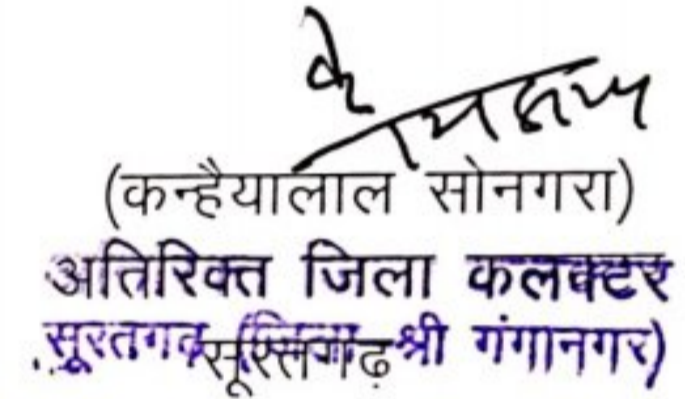 (कन्हैयालाल सोनगरा)
अतिरिक्त जिला कलक्टर
सूरतगढ़ (जिला श्री गंगानगर)
सूरतगढ़